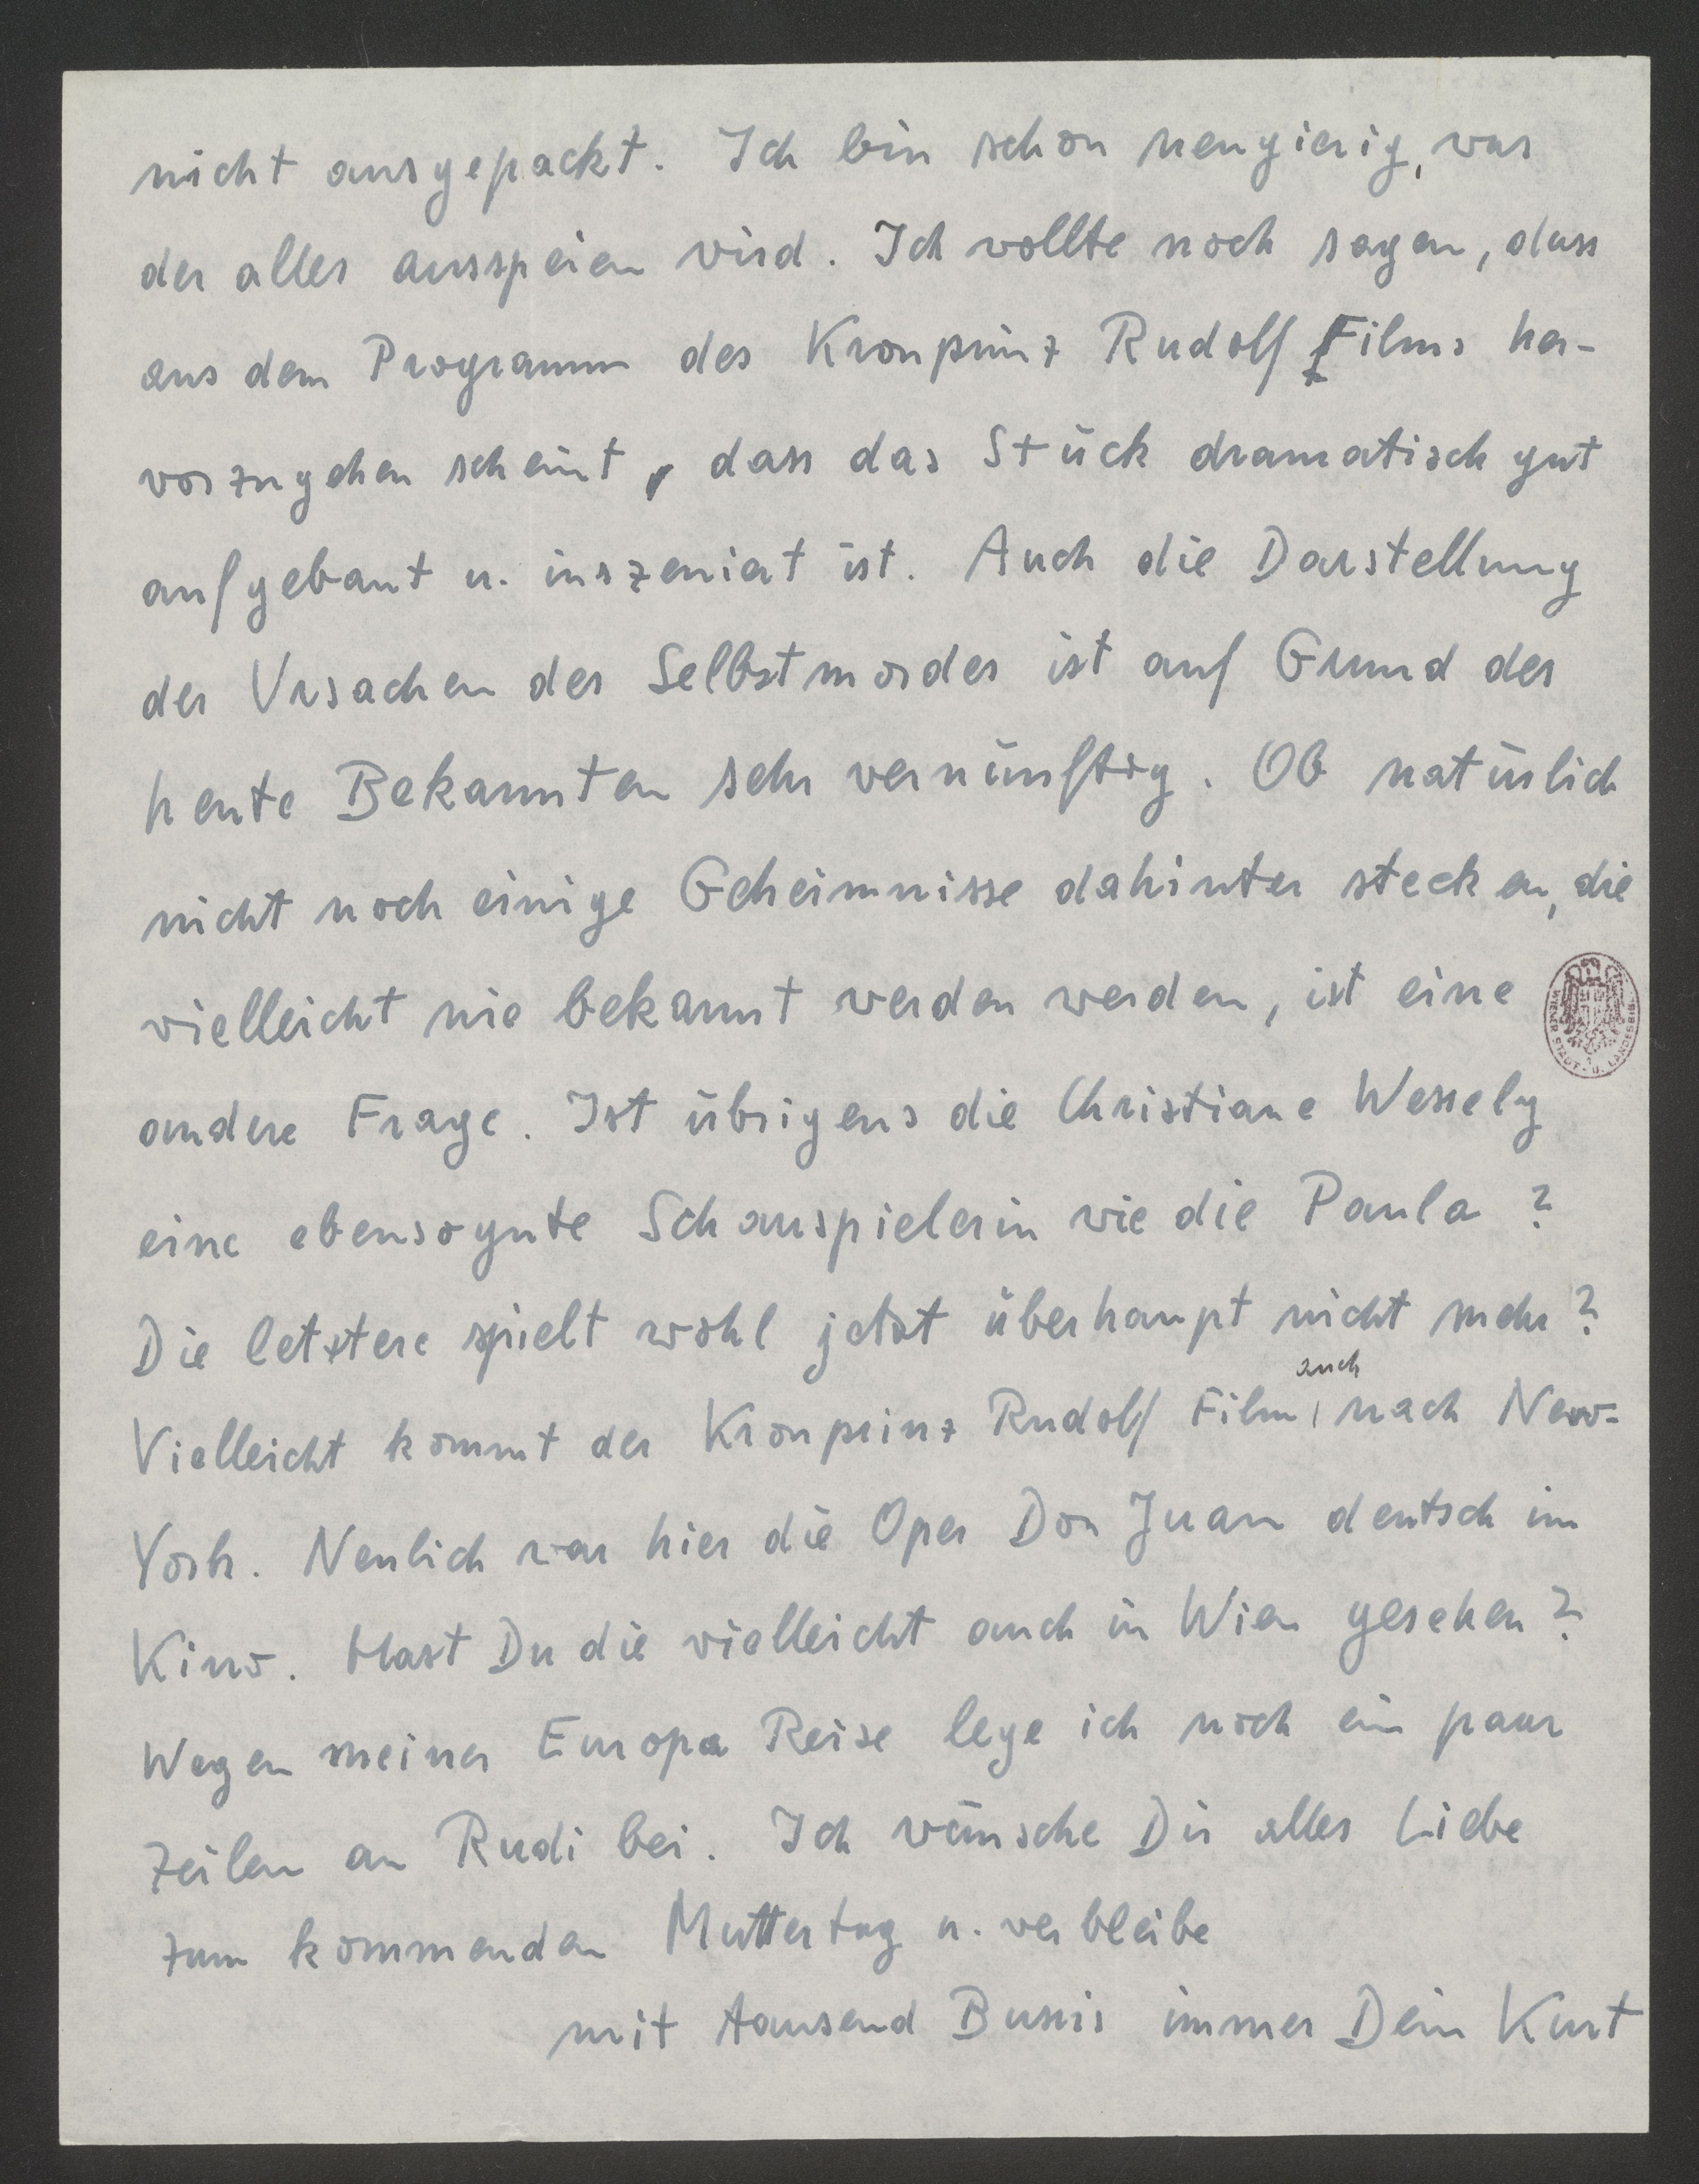 nicht ausgepackt. Ich bin schon neugierig, was
der alles ausspeien wird. Ich wollte noch sagen, dass
aus dem Programm des Kronprinz Rudolf Films her-
vorzugehen scheint, dass das Stück dramatisch gut
aufgebaut u. inszeniert ist. Auch die Darstellung
der Ursachen des Selbstmordes ist auf Grund des
heute Bekannten sehr vernünftig. Ob natürlich
nicht noch einige Geheimnisse dahinter stecken, die
vielleicht nie bekannt werden werden, ist eine
WIENER STADT- U. LANDESBIBL.
andere Frage. Ist übrigens die Christiane Wessely
eine ebensogute Schauspielerin wie die Paula?
Die letztere spielt wohl jetzt überhaupt nicht mehr?
auch
Vielleicht kommt der Kronprinz Rudolf Film nach New-
York. Neulich war hier die Oper Don Juan deutsch im
Kino. Hast Du die vielleicht auch in Wien gesehen?
Wegen meiner Europa Reise lege ich noch ein paar
Zeilen an Rudi bei. Ich wünsche Dir alles Liebe
zum kommenden Muttertag u. verbleibe
mit tausend Bussis immer Dein Kurt